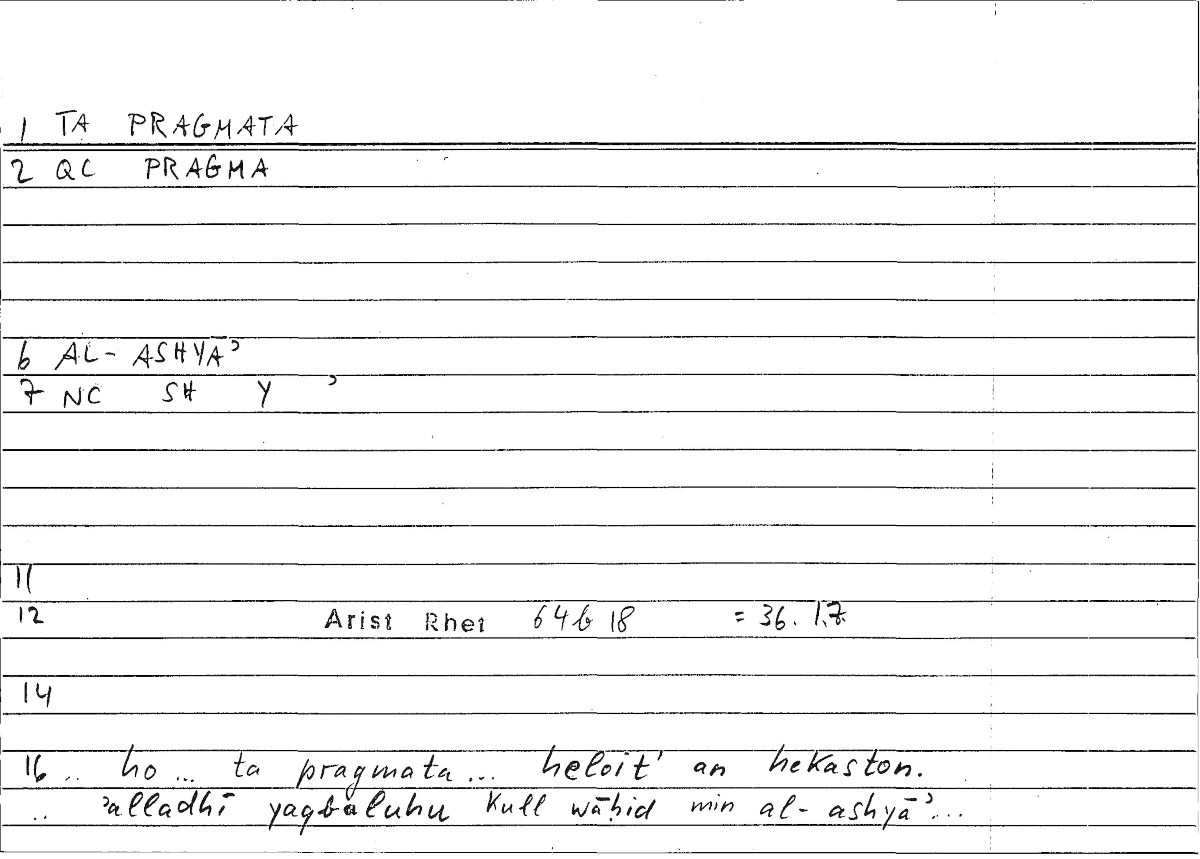 1 TA PRAGMATA
2 QC PRAGMA
6 AL- ASHYĀʾ
7 NC SH Y ʾ
11
12 Arist Rhet 64b 18 = 36. 17.
14
16 .. ho ... ta pragmata ... heloit' an hekaston.
.. ʾalladhī yaqbaluhu kull wāḥid min al-ashyāʾ...